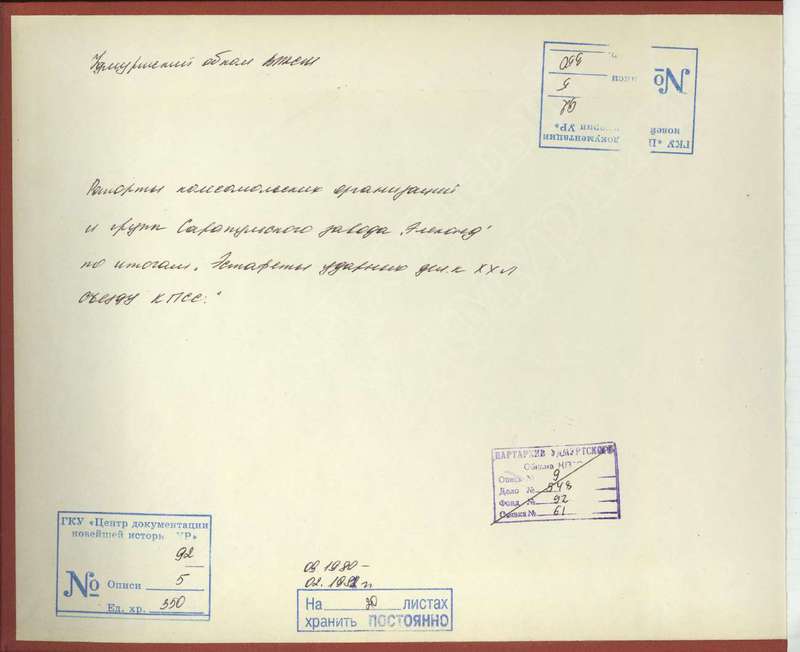 Удмуртский обком ВЛКСМ
350
5
92
№
ГКУ «Ц
документации
новей
тории УР»
Рапорты комсомольских организаций
и групп Сарапульского завода "Элеконд"
по итогам "Эстафеты ударных дел к XXVI
съезду КПСС."
ПАРТАРХИВ УДМУРТСКОГО
Обкома КПСС
Опись № 9
Дело № 548
Фонд № 92
Связка № 61
ГКУ «Центр документации
новейшей истории УР»
92
№ Описи 5
Ед. хр. 350
09.1980 –
02.1981 г.
На 30 листах
хранить ПОСТОЯННО